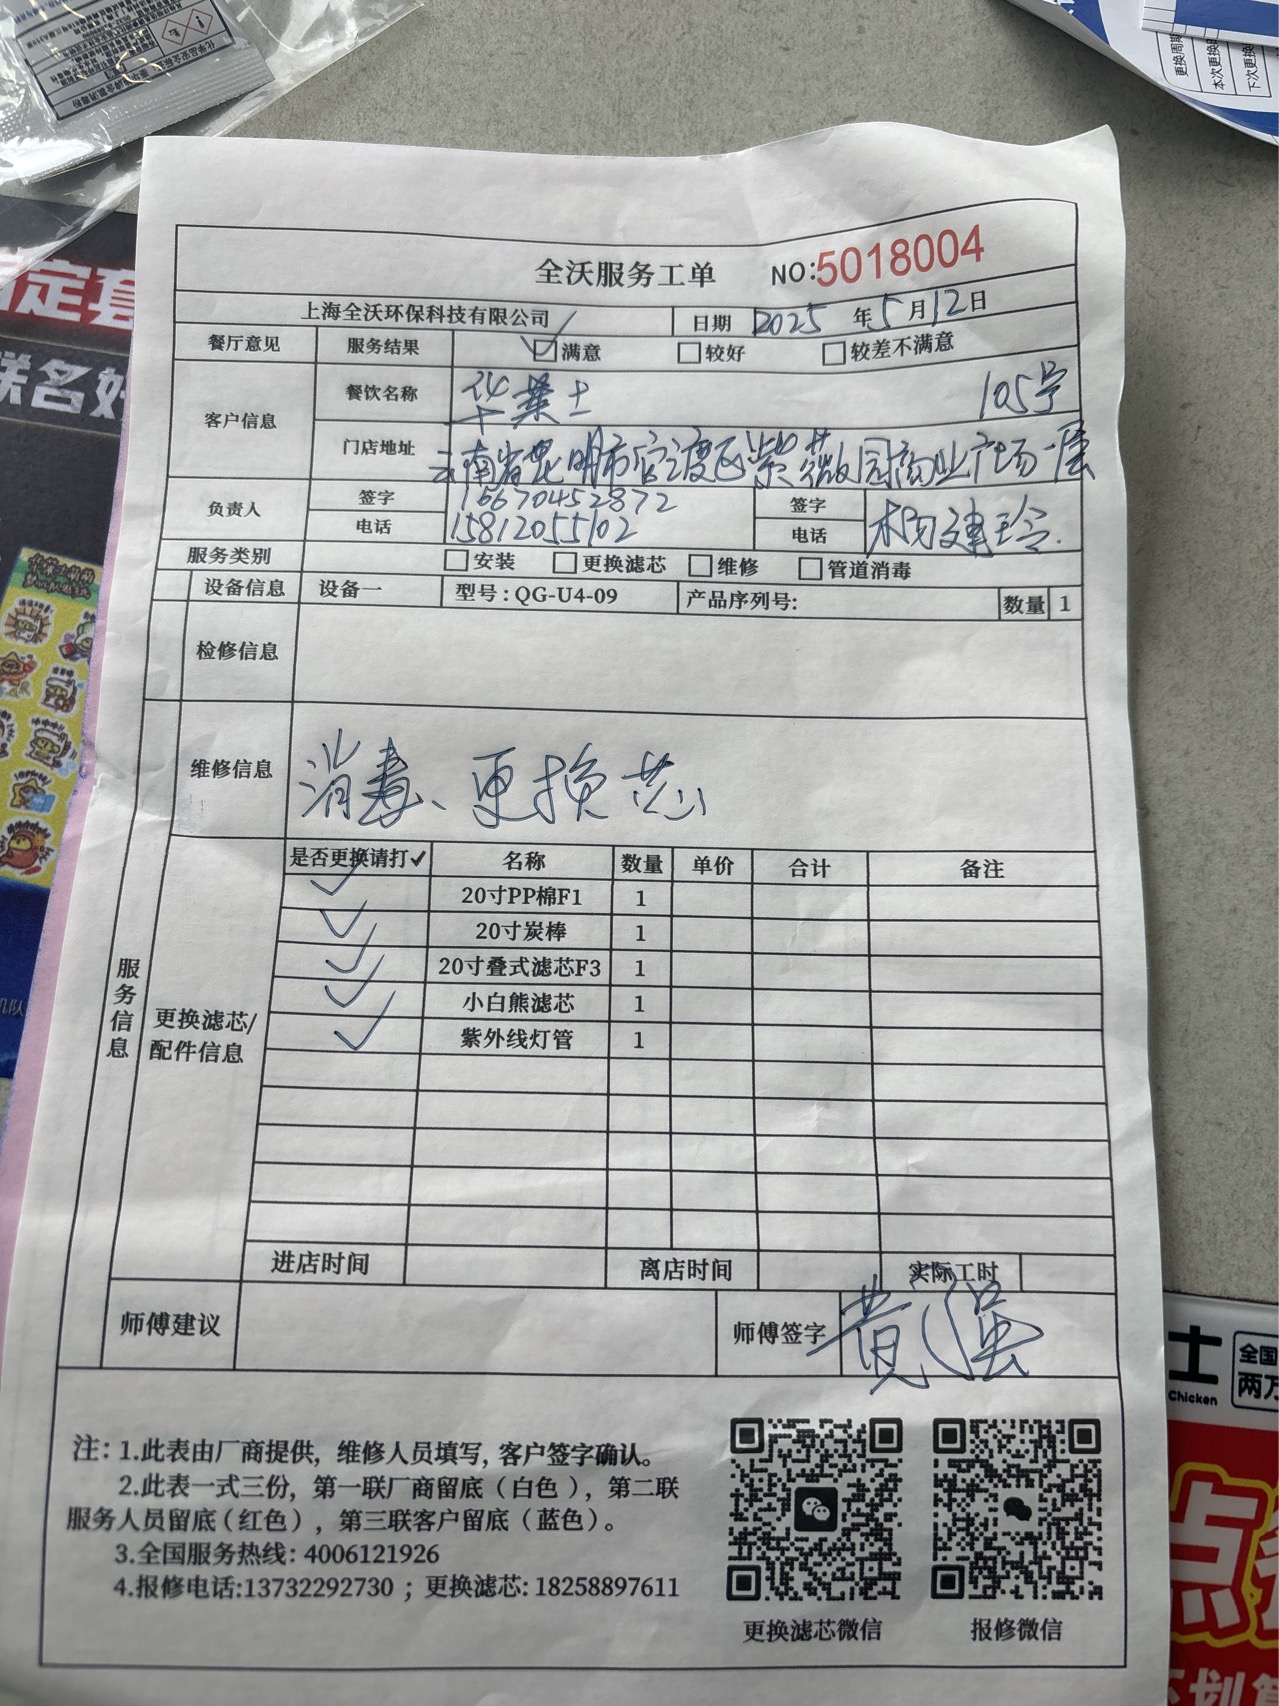 全沃服务工单 NO:5018004
上海全沃环保科技有限公司 日期 2025年5月12日
餐厅意见 服务结果 ✓□满意 □较好 □较差不满意
客户信息 餐饮名称 华莱士 105号
门店地址 云南省昆明市官渡区紫薇园商业广场一层
负责人 签字 16670452872 签字
电话 15812055102 电话 杨建玲
服务类别 □安装 □更换滤芯 □维修 □管道消毒
设备信息 设备一 型号:QG-U4-09 产品序列号: 数量 1
检修信息
维修信息 消毒、更换芯
服务信息
更换滤芯/配件信息
是否更换请打✓ 名称 数量 单价 合计 备注
✓ 20寸PP棉F1 1
✓ 20寸炭棒 1
✓ 20寸叠式滤芯F3 1
✓ 小白熊滤芯 1
✓ 紫外线灯管 1
进店时间 离店时间 实际工时
师傅建议 师傅签字 黄强
注:1.此表由厂商提供,维修人员填写,客户签字确认。
2.此表一式三份,第一联厂商留底(白色),第二联
服务人员留底(红色),第三联客户留底(蓝色)。
3.全国服务热线:4006121926
4.报修电话:13732292730;更换滤芯:18258897611
更换滤芯微信 报修微信
更换周期
本次更换
下次更换
定套
联名好
士
Chicken
全国
两万
点
划算